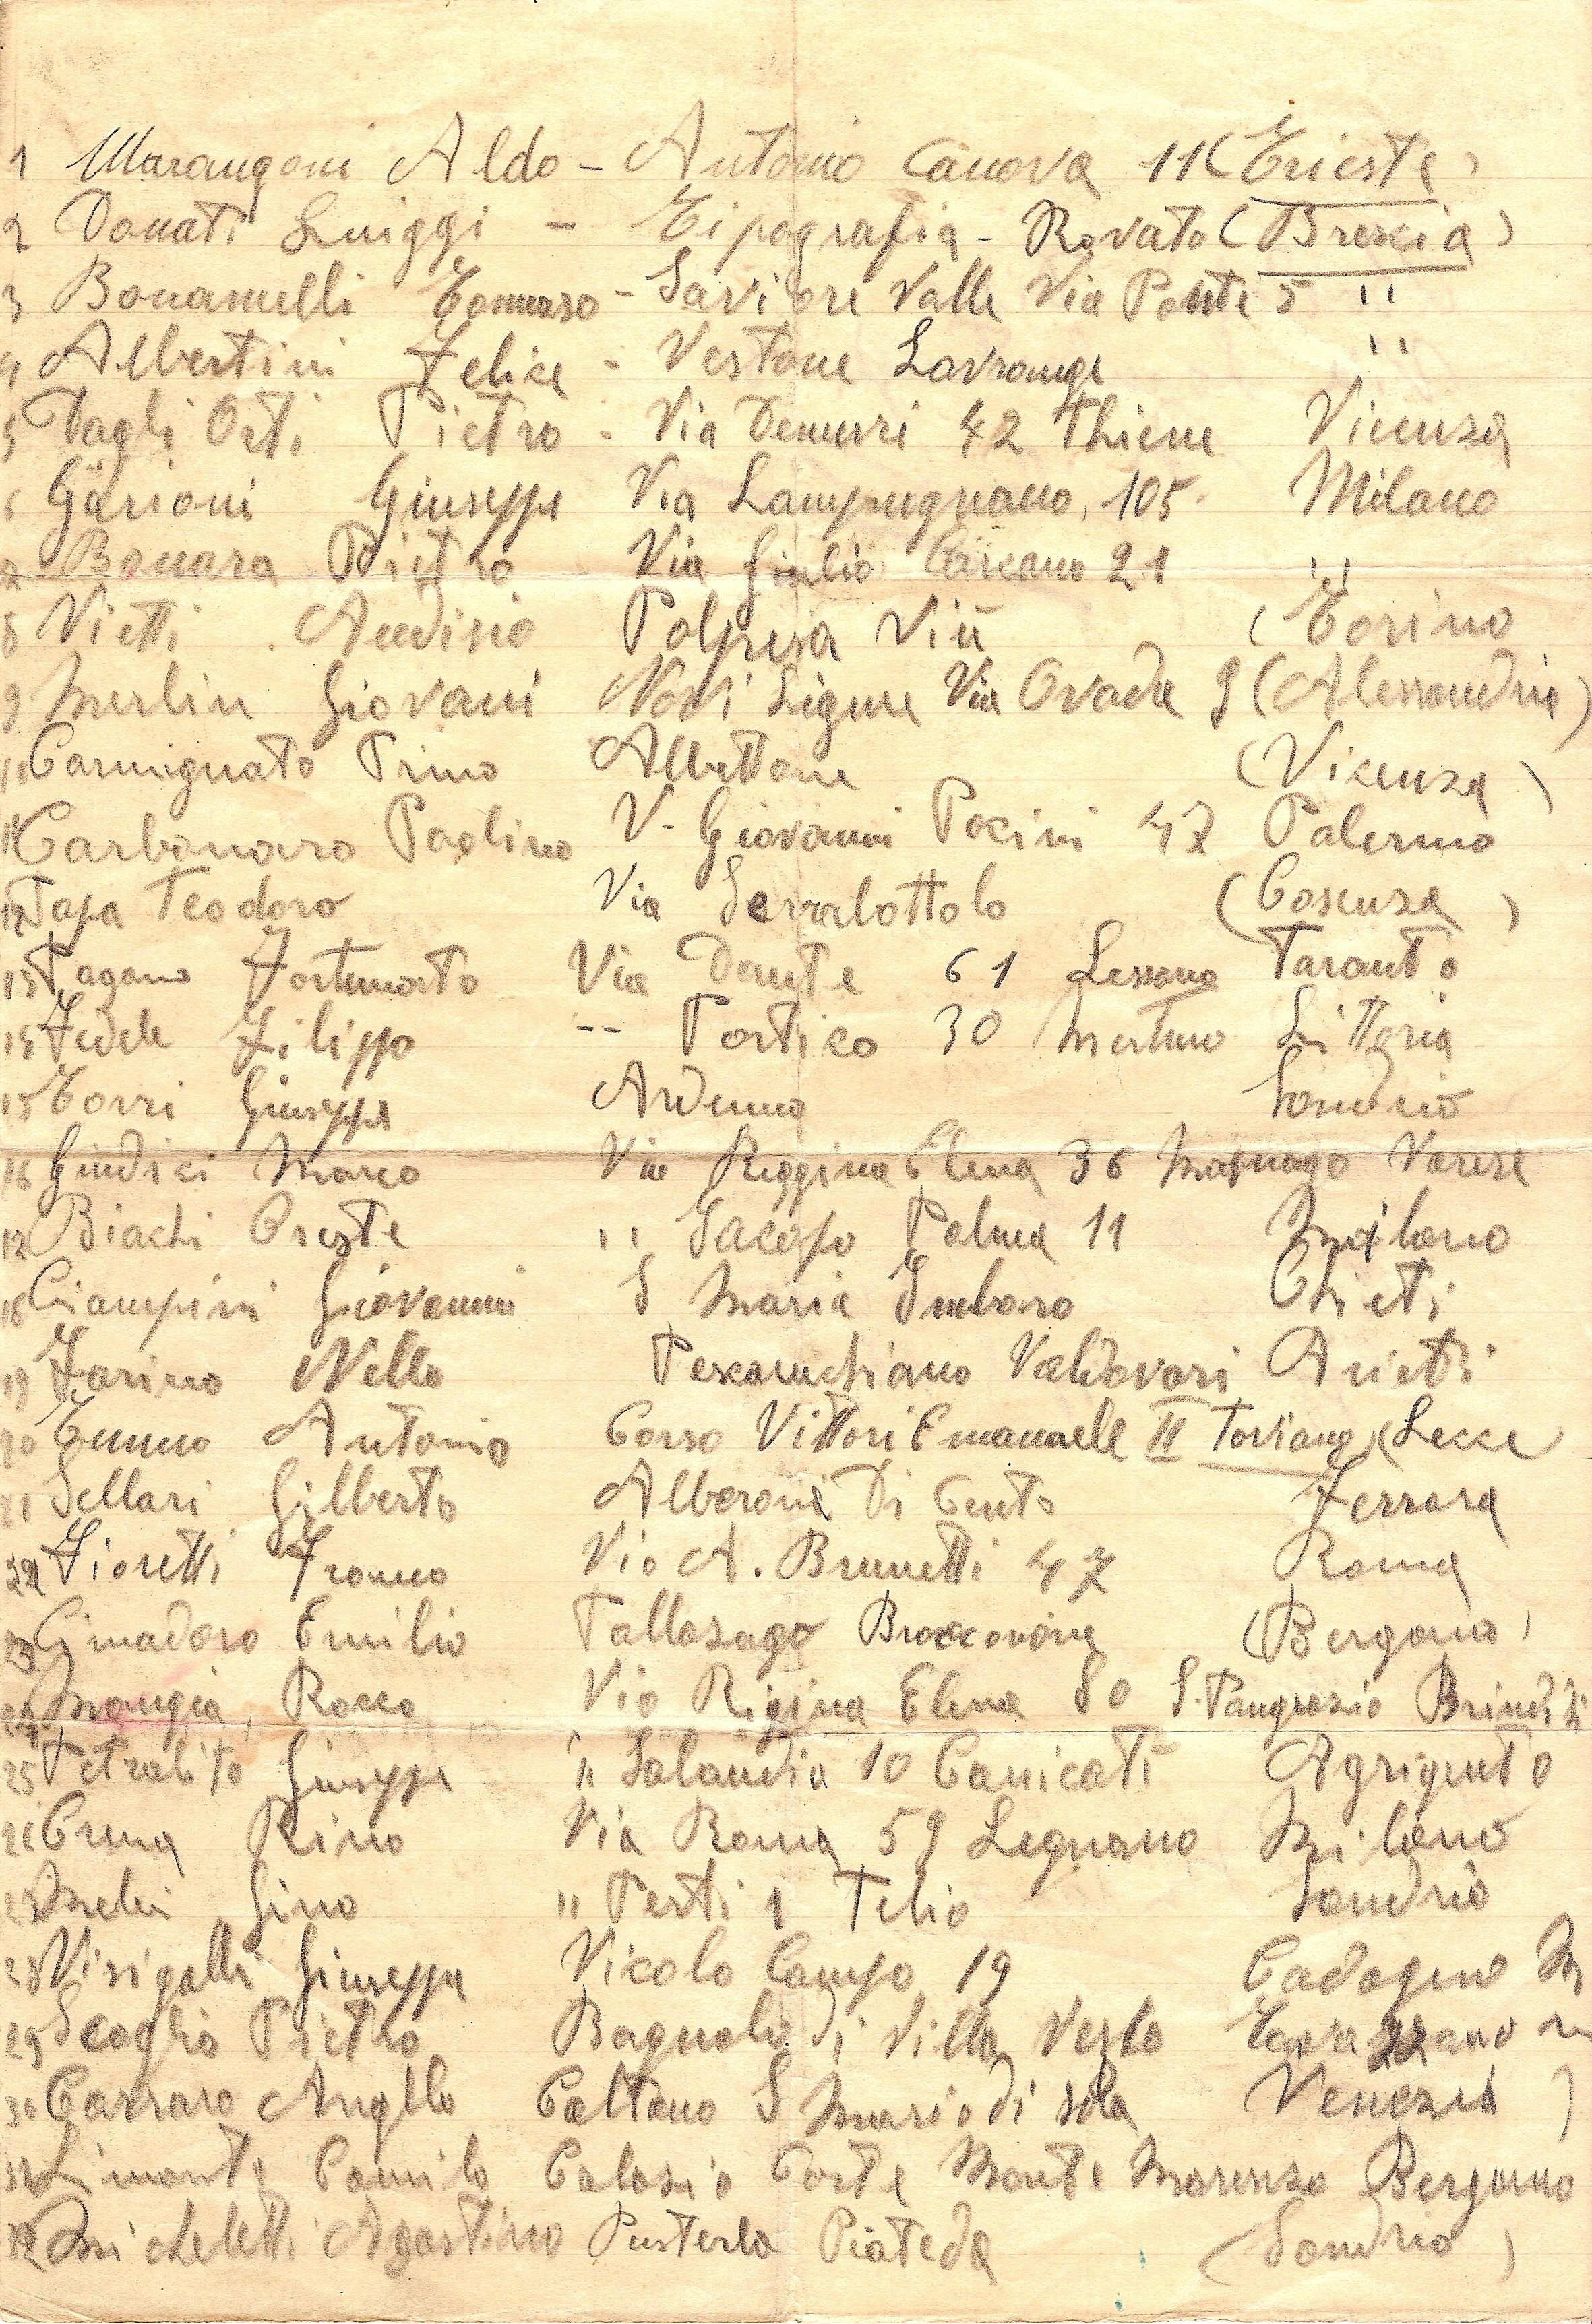 1 Marangoni Aldo - Antonio Canova 11 (Trieste)
2 Donati Luiggi - Tipografia - Rovato (Brescia)
3 Bonamelli Tommaso - Saviore Valle Via Ponte 5 "
4 Albertini Felice - Vestone Lavrange "
5 Dagli Orti Pietro - Via 42 Thiene Vicenza
6 Garioni Giuseppe Via Lampugnano, 105 Milano
Bonara Pietro Via Giulio Carcano 21 "
8 Vietti Audisio Polpresa Viù (Torino
9 Merlin Giovani Novi Ligure Via Ovada 9 (Alessandria)
Carmignato Primo Albettone (Vicenza)
11 Carbonaro Paolino V- Giovanni Pocini 47 Palermo
12 Papa Teodoro Via Serralottolo (Cosenza)
13 Pagano Fortunato Via Dante 61 Lessano Taranto
Fedele Filippo -- Portico 30 Mertuno Littoria
15 Torri Giuseppe Ardenno Sondrio
16 Giudici Marco Via Reggina Elena 36 Mornago Varese
17 Biachi Oreste " Jacopo Palma 11 Milano
18 Ciampini Giovanni S Maria Imbaro Chieti
19 Farino Nello Pescarochiano Valdovari Arieti
20 Tunno Antonio Corso Vittori Emanuele II Taviano (Lecce
21 Sellari Gilberto Alberone Di Cento Ferrara
22 Fioretti Franco Via A. Brunetti 47 Roma
23 Ginadoro Emilio Pallosago Broccovione (Bergamo)
24 Mangia, Rocco Via Rigina Elena 80 S. Pangrazio Brindisi
25 Petralito Giuseppe " Salandra 10 Canicati Agrigento
26 Crena Rino Via Roma 59 Legnano Milano
Melei Gino " Pesti 1 Telio Sondrio
28 Visigalli Giuseppe Vicolo Campo 19 Codogno M
29 Scoglio Pietro Bagnoli Di Villa Verla
30 Carraro Angelo Caltana S Maria di Sala Venezia)
31 Limonta Camilo Colosio Corte Monte Marenzo Bergamo
32 Micheletti Agostino Pusterla Piateda (Sondrio)